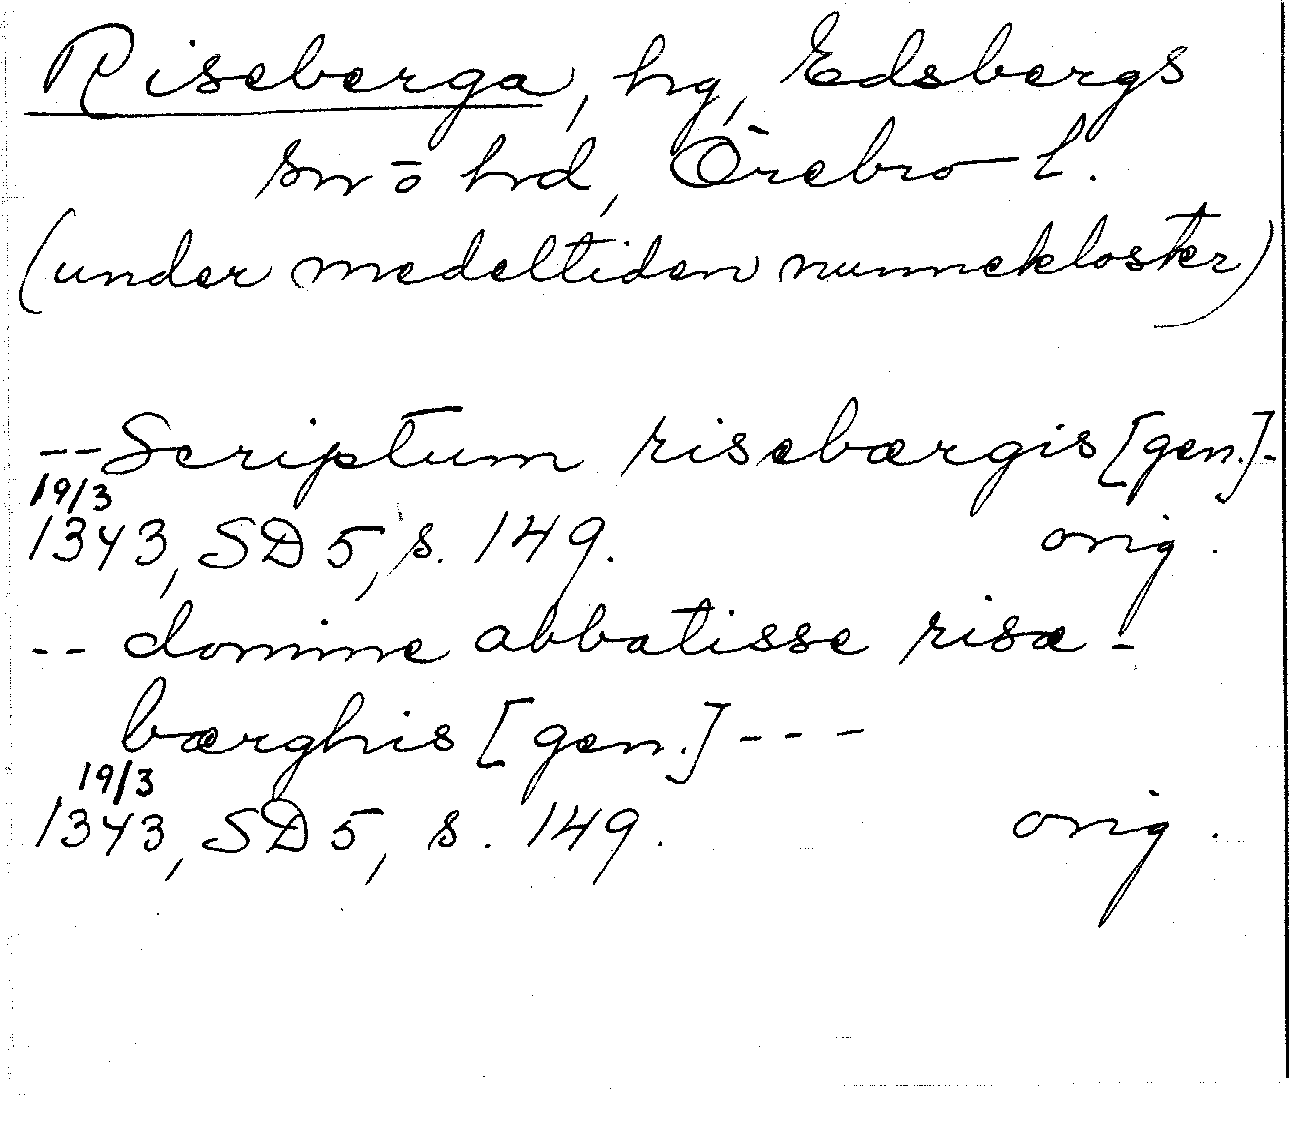 Riseberga, hg, Edsbergs
sn o hd, Örebro l.
(under medeltiden nunnekloster)
-- Scriptum risebærgis [gen.] -
19/3
1343, SD 5, s. 149. orig.
-- domine abbatisse risæ -
bærghis [gen.] ---
19/3
1343, SD 5, s. 149. orig.